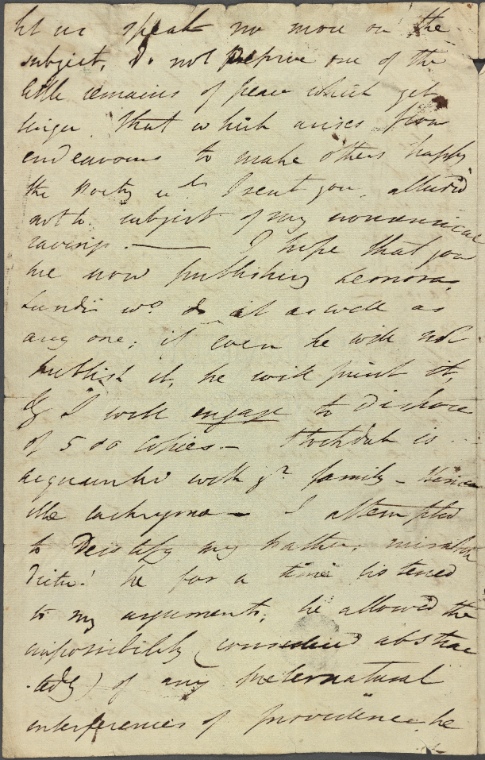 let us speak no more on the
subject, Do not deprive me of the
little remains of peace which yet
linger. that which arises from
endeavours to make others happy
the Poetry wh I sent you, alluded
not to subject of my nonsensical
ravings. — I hope that you
are now publishing Leonora
Lundi wd do it as well as
any one; if even he will not
publish it, he will print it,
& I will engage to dispose
of 500 Copies — Stockdale is
acquainted with yr family — Hence
illæ lachrymæ — I attempted
to Deistify my Father; mirabile
Dictu! he for a time listened
to my arguments, he allowed the
impossibility (considered abstrac
-tedly) of any preternatural
interferences of Providence, he